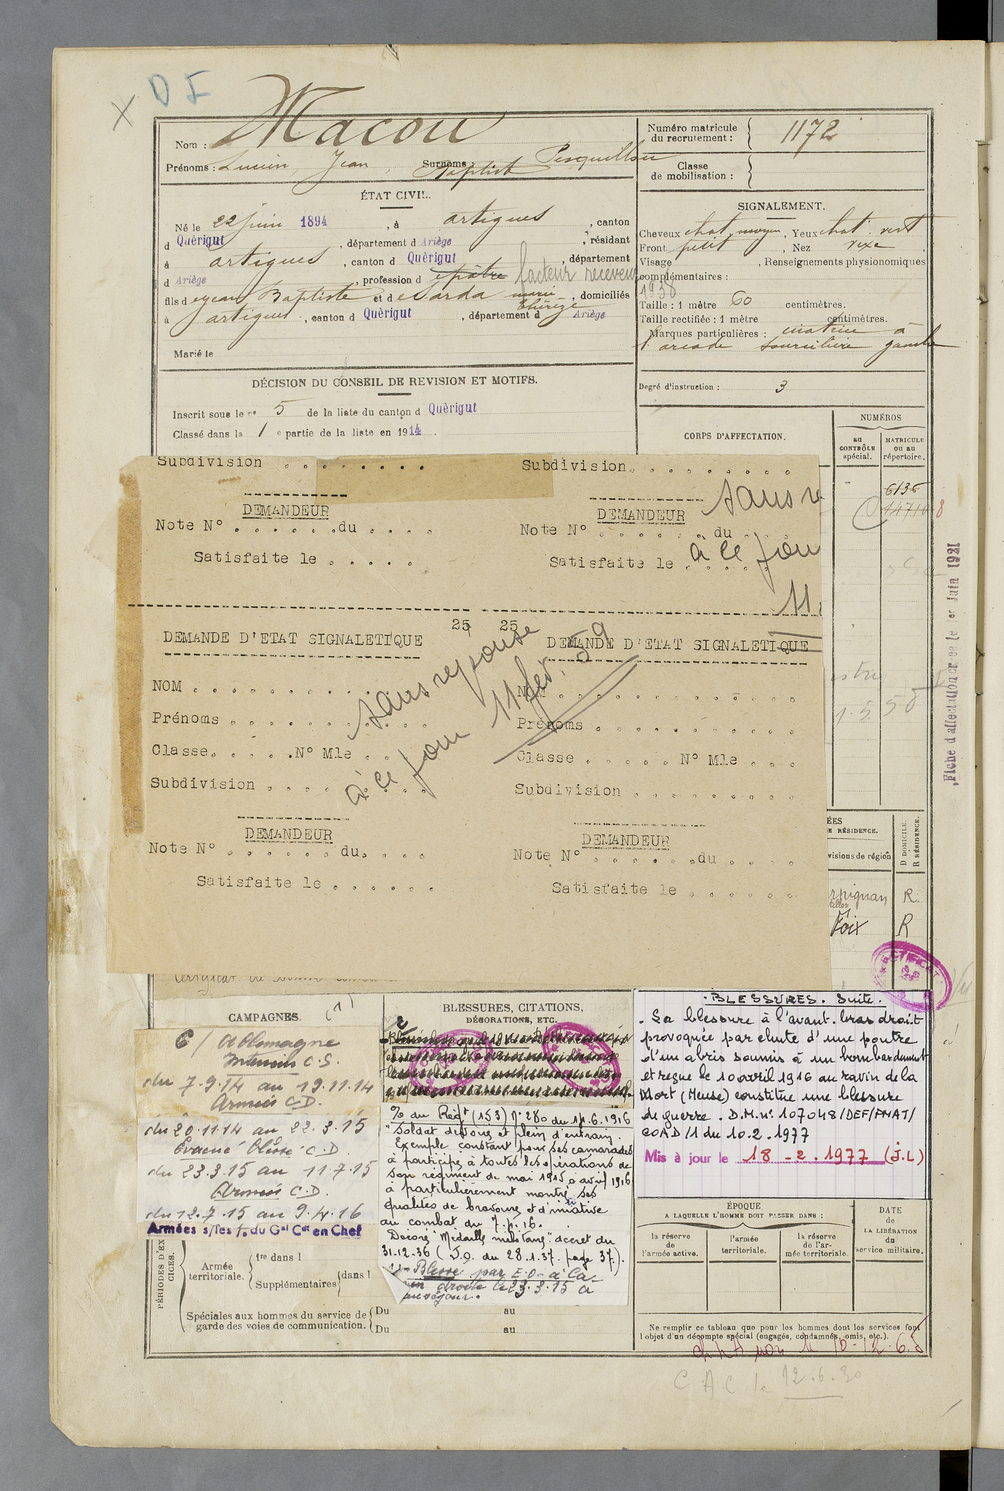 D I
X
Nom : Macou
Prénoms : Lucien Jean Surnoms : Baptiste Pesquillou
Numéro matricule
du recrutement : 1172
Classe
de mobilisation :
ÉTAT CIVIL.
Né le 22 juin 1894, à artigues, canton
d Quérigut, département d Ariège, résidant
à artigues, canton d Quérigut, département
d Ariège, profession d facteur receveur
fils de Jean Baptiste et de Sarda marie Thérèze, domiciliés
à artigues, canton d Quérigut, département d Ariège
Marié le
SIGNALEMENT.
Cheveux chat. moyen, Yeux chat. vert
Front petit, Nez
Visage, Renseignements physionomiques
complémentaires :
1938
Taille : 1 mètre 60 centimètres.
Taille rectifiée : 1 mètre centimètres.
Marques particulières : cicatrice à
l'arcade sourcilière gauche
Degré d'instruction : 3
DÉCISION DU CONSEIL DE REVISION ET MOTIFS.
Inscrit sous le n° 5 de la liste du canton d Quérigut
Classé dans la 1 e partie de la liste en 1914
CORPS D'AFFECTATION.
NUMÉROS
au
CONTRÔLE
spécial.
MATRICULE
ou au
répertoire.
6135
Fiche d'affectation créée le 1er Juin 1921
Subdivision . . . . . . . .
DEMANDEUR
Note N° . . . . . . du . . . .
Satisfaite le . . . . .
Subdivision. . . . . . . . .
DEMANDEUR
Note N° . . . . . . du . . .
Satisfaite le . . . . .
sans re
à ce jour
11
25 25
DEMANDE D'ETAT SIGNALETIQUE
NOM . . . . . . . . . . . .
Prénoms . . . . . . . . . .
Classe. . . . . .N° Mle . . .
Subdivision . . . . . . . .
DEMANDEUR
Note N° . . . . . . du. . . .
Satisfaite le . . . . . .
sans reponse
à ce jour 11 fev. 59
DEMANDE D'ETAT SIGNALETIQUE
NOM . . . . . . . . . . . .
Prénoms . . . . . . . . . .
Classe . . . . . N° Mle . . .
Subdivision . . . . . . . . .
DEMANDEUR
Note N° . . . . . .du . . . .
Satisfaite le . . . . . .
RÉSIDENCE.
visions de région
D DOMICILE.
R RÉSIDENCE.
R
Foix R
CAMPAGNES.
C/ Allemagne
Intérieur C.S.
du 7.9.14 au 19.11.14
Armées C.D.
du 20.11.14 au 22.3.15
Evacué blessé C.D.
du 23.3.15 au 11.7.15
Armées C.D.
du 12.7.15 au 9.4.16
BLESSURES, CITATIONS,
DÉCORATIONS, ETC.
% du Régt (153) N° 280 du 17.6.1916
"Soldat dévoué et plein d'entrain.
Exemple constant pour ses camarades
à participé à toutes les opérations de
son régiment de mai 1915 à avril 1916
à particulièrement montré ses
qualités de bravoure et d'initiative
au combat du
Décoré "Médaille militaire" décret du
31.12.36 (J.O. du 28.1.37. page 37).
Blessé par E.O. à la
droite le 23.3.15 à
RECTIFICATION
BLESSURES. Suite.
. Sa blessure à l'avant-bras droit
provoquée par chute d'une poutre
d'un abris soumis à un bombardement
et reçue le 10 avril 1916 au ravin de la
Mort (Meuse) constitue une blessure
de guerre. D.M. n° 107048/DEF/PMAT/
COAD/1 du 10.2.1977
Mis à jour le 18 -2 .1977 (J.L)
PÉRIODES D'EXERCICES.
Armée
territoriale.
1re dans l
Supplémentaires dans l
Spéciales aux hommes du service de
garde des voies de communication.
Du au
Du au
ÉPOQUE
A LAQUELLE L'HOMME DOIT PASSER DANS :
la réserve
de
l'armée active.
l'armée
territoriale.
la réserve
de l'ar-
mée territoriale.
DATE
de
LA LIBÉRATION
du
service militaire.
Ne remplir ce tableau que pour les hommes dont les services font
l'objet d'un décompte spécial (engagés, condamnés, omis, etc.).
C A C le 12.6.30